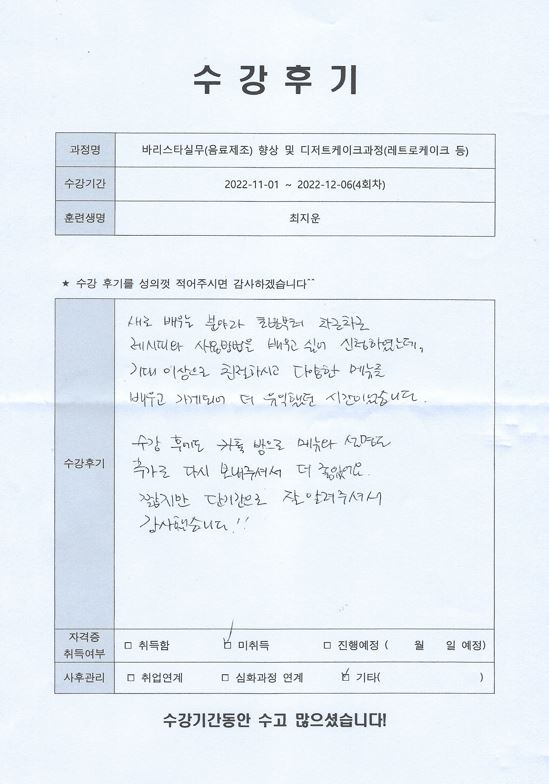 수강후기
과정명 바리스타실무(음료제조) 향상 및 디저트케이크과정(레트로케이크 등)
수강기간 2022-11-01 ~ 2022-12-06(4회차)
훈련생명 최지운
★ 수강 후기를 성의껏 적어주시면 감사하겠습니다^^
수강후기
새로 배우는 분야라 차근차근
레시피와 사용방법을 배우고 싶어 신청하였는데,
기대 이상으로 친절하시고 다양한 메뉴를
배우고 가게되어 더 유익했던 시간이었습니다.
수강 후에도 카톡 방으로 메뉴와 설명도
추가로 다시 보내주셔서 더 좋았어요.
짧지만 단기간으로 잘 알려주셔서
감사했습니다!!
자격증 취득여부 □ 취득함 ☑ 미취득 □ 진행예정 ( 월 일 예정)
사후관리 □ 취업연계 □ 심화과정 연계 ☑ 기타( )
수강기간동안 수고 많으셨습니다!